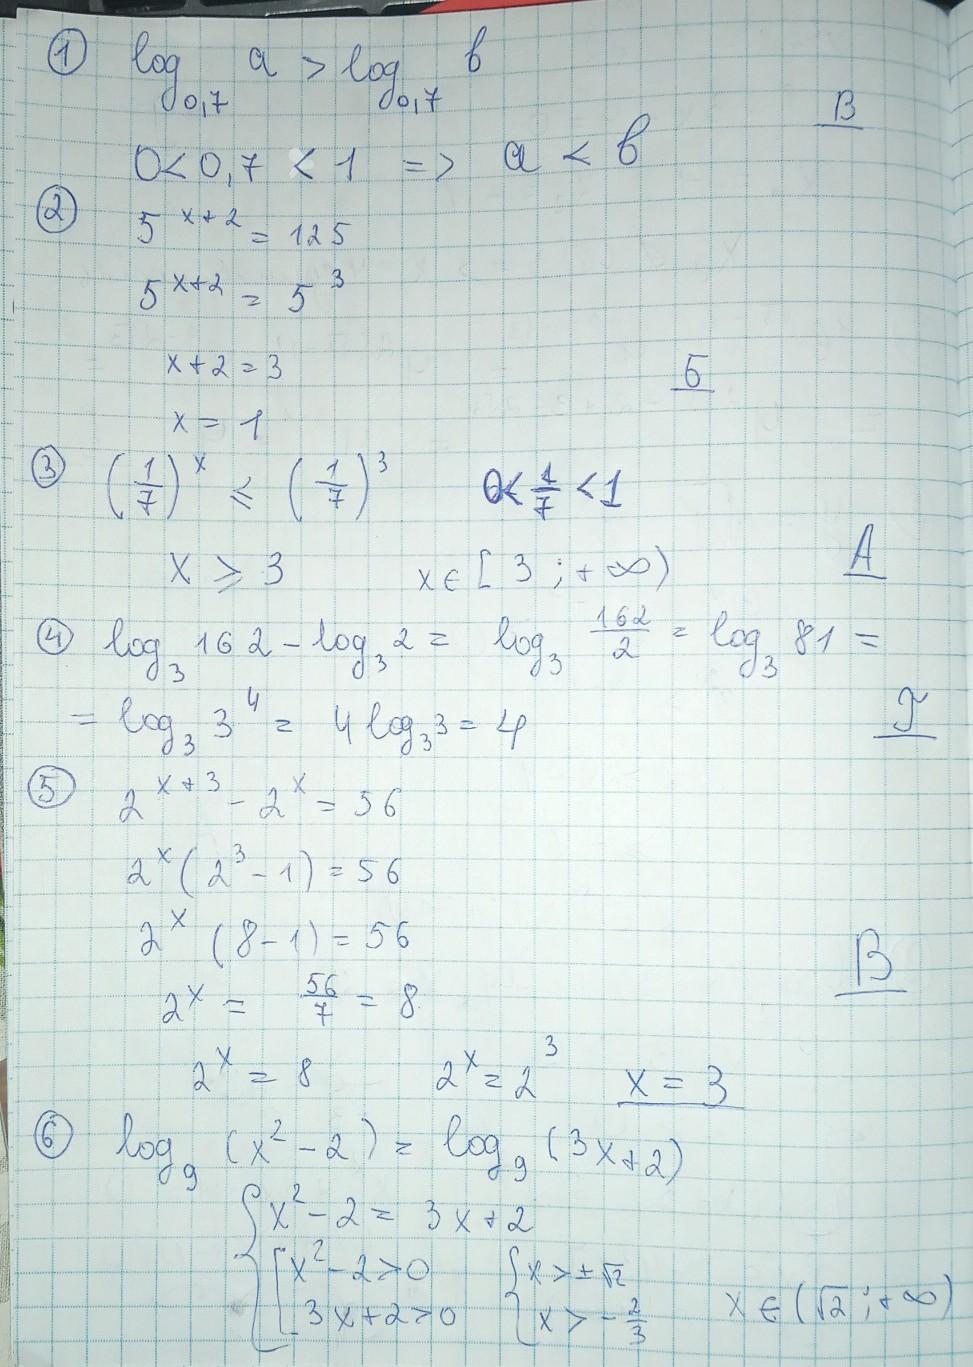 ① log₀,₇ a > log₀,₇ b
0 < 0,7 < 1 => a < b
В
② 5^(x+2) = 125
5^(x+2) = 5^3
x + 2 = 3
Б
x = 1
③ (1/7)^x ⩽ (1/7)^3 0 < 1/7 < 1
x ⩾ 3 x ∈ [3 ; +∞)
А
④ log₃ 162 - log₃ 2 = log₃ 162/2 = log₃ 81 =
= log₃ 3^4 = 4 log₃ 3 = 4
Г
⑤ 2^(x+3) - 2^x = 56
2^x (2^3 - 1) = 56
2^x (8 - 1) = 56
В
2^x = 56/7 = 8
2^x = 8 2^x = 2^3 x = 3
⑥ log₉ (x² - 2) = log₉ (3x + 2)
{ x² - 2 = 3x + 2
[ x² - 2 > 0 { x > ±√2
3x + 2 > 0 x > - 2/3 x ∈ (√2 ; +∞)